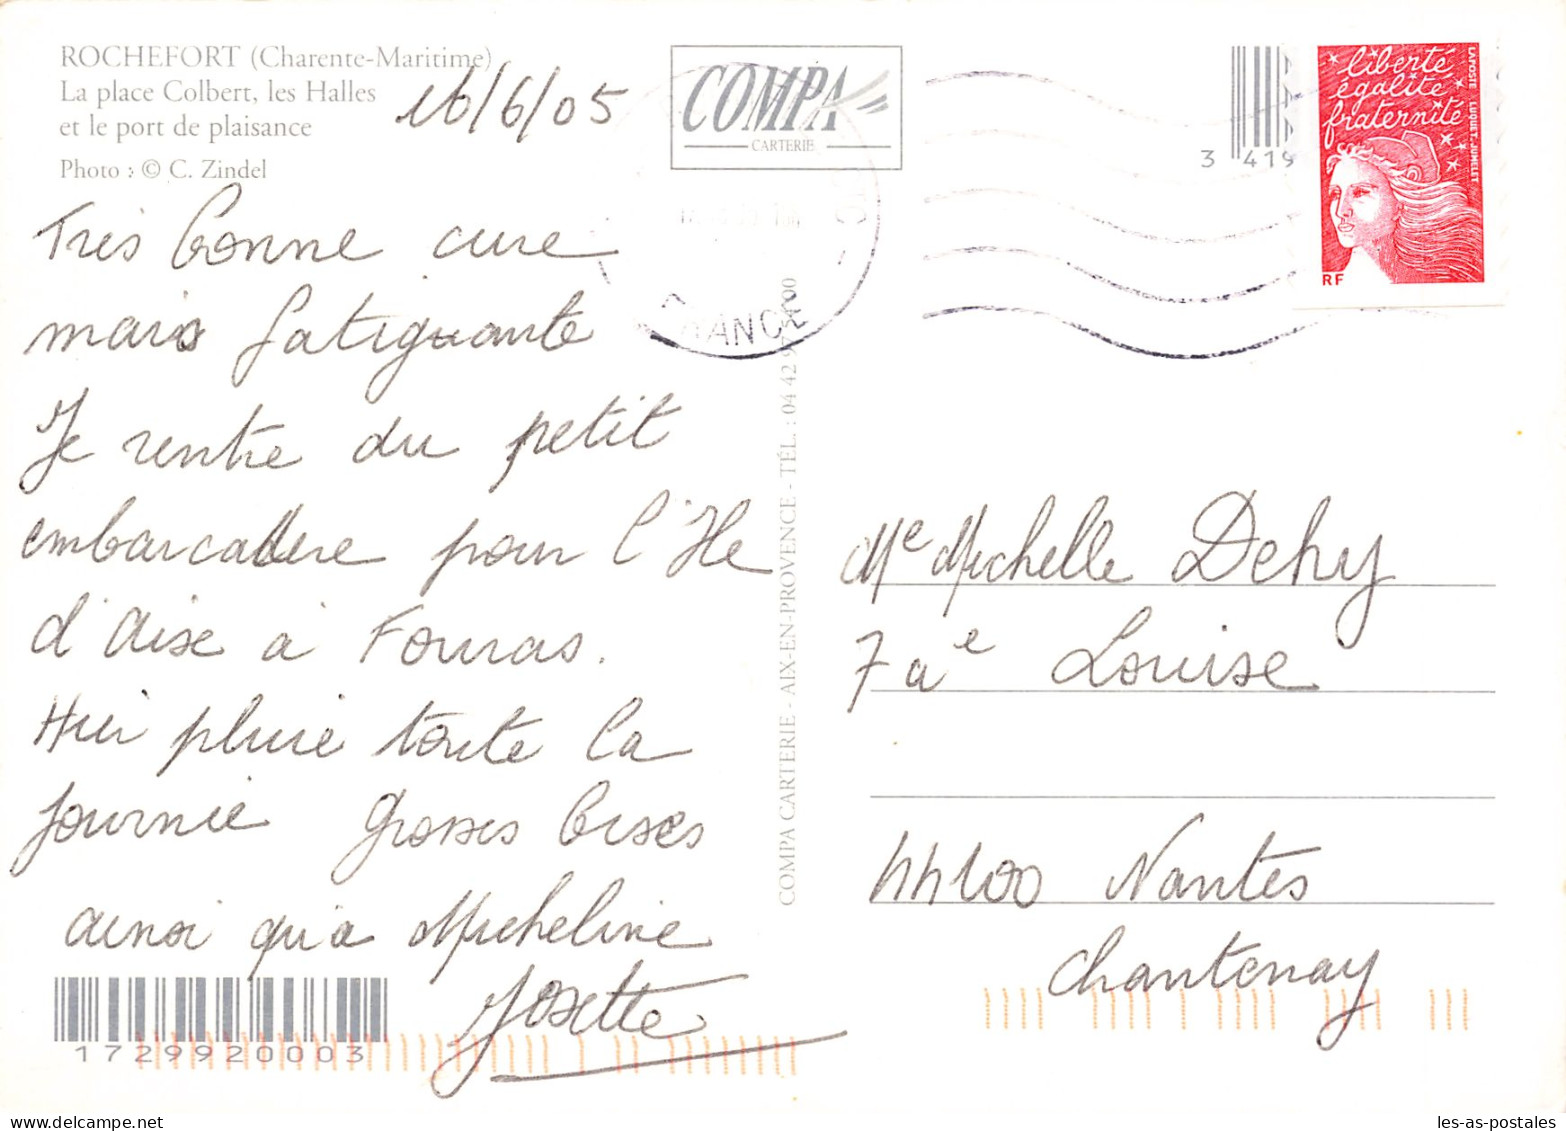 ROCHEFORT (Charente-Maritime)
La place Colbert, les Halles
et le port de plaisance
Photo : © C. Zindel
16/6/05
COMPA
CARTERIE
3 419
liberté
égalité
fraternité
RF
LA POSTE LUQUET-JUMELET
Très bonne cure
mais fatiguante
Je rentre du petit
embarcadere pour l'Ile
d'Aixe à Fouras.
Hier pluie toute la
journée Grosses bises
ainsi qu'a Micheline
Josette
COMPA CARTERIE - AIX-EN-PROVENCE - TÉL. : 04 42 9
Me Michelle Dehy
7 a e Louise
44100 Nantes
Chantenay
1729920003
les-as-postales